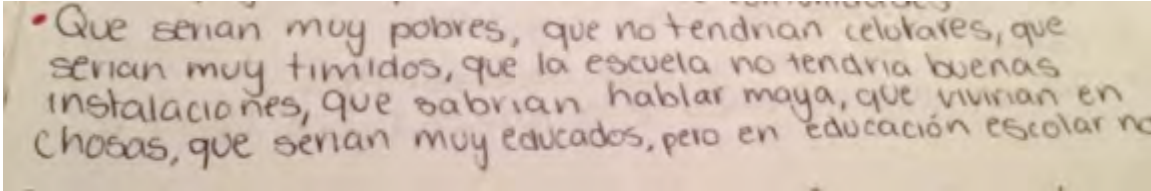 • Que serian muy pobres, que no tendrian celulares, que
serian muy timidos, que la escuela no tendria buenas
instalaciones, que sabrian hablar maya, que vivirian en
chosas, que serian muy educados, pero en educación escolar no